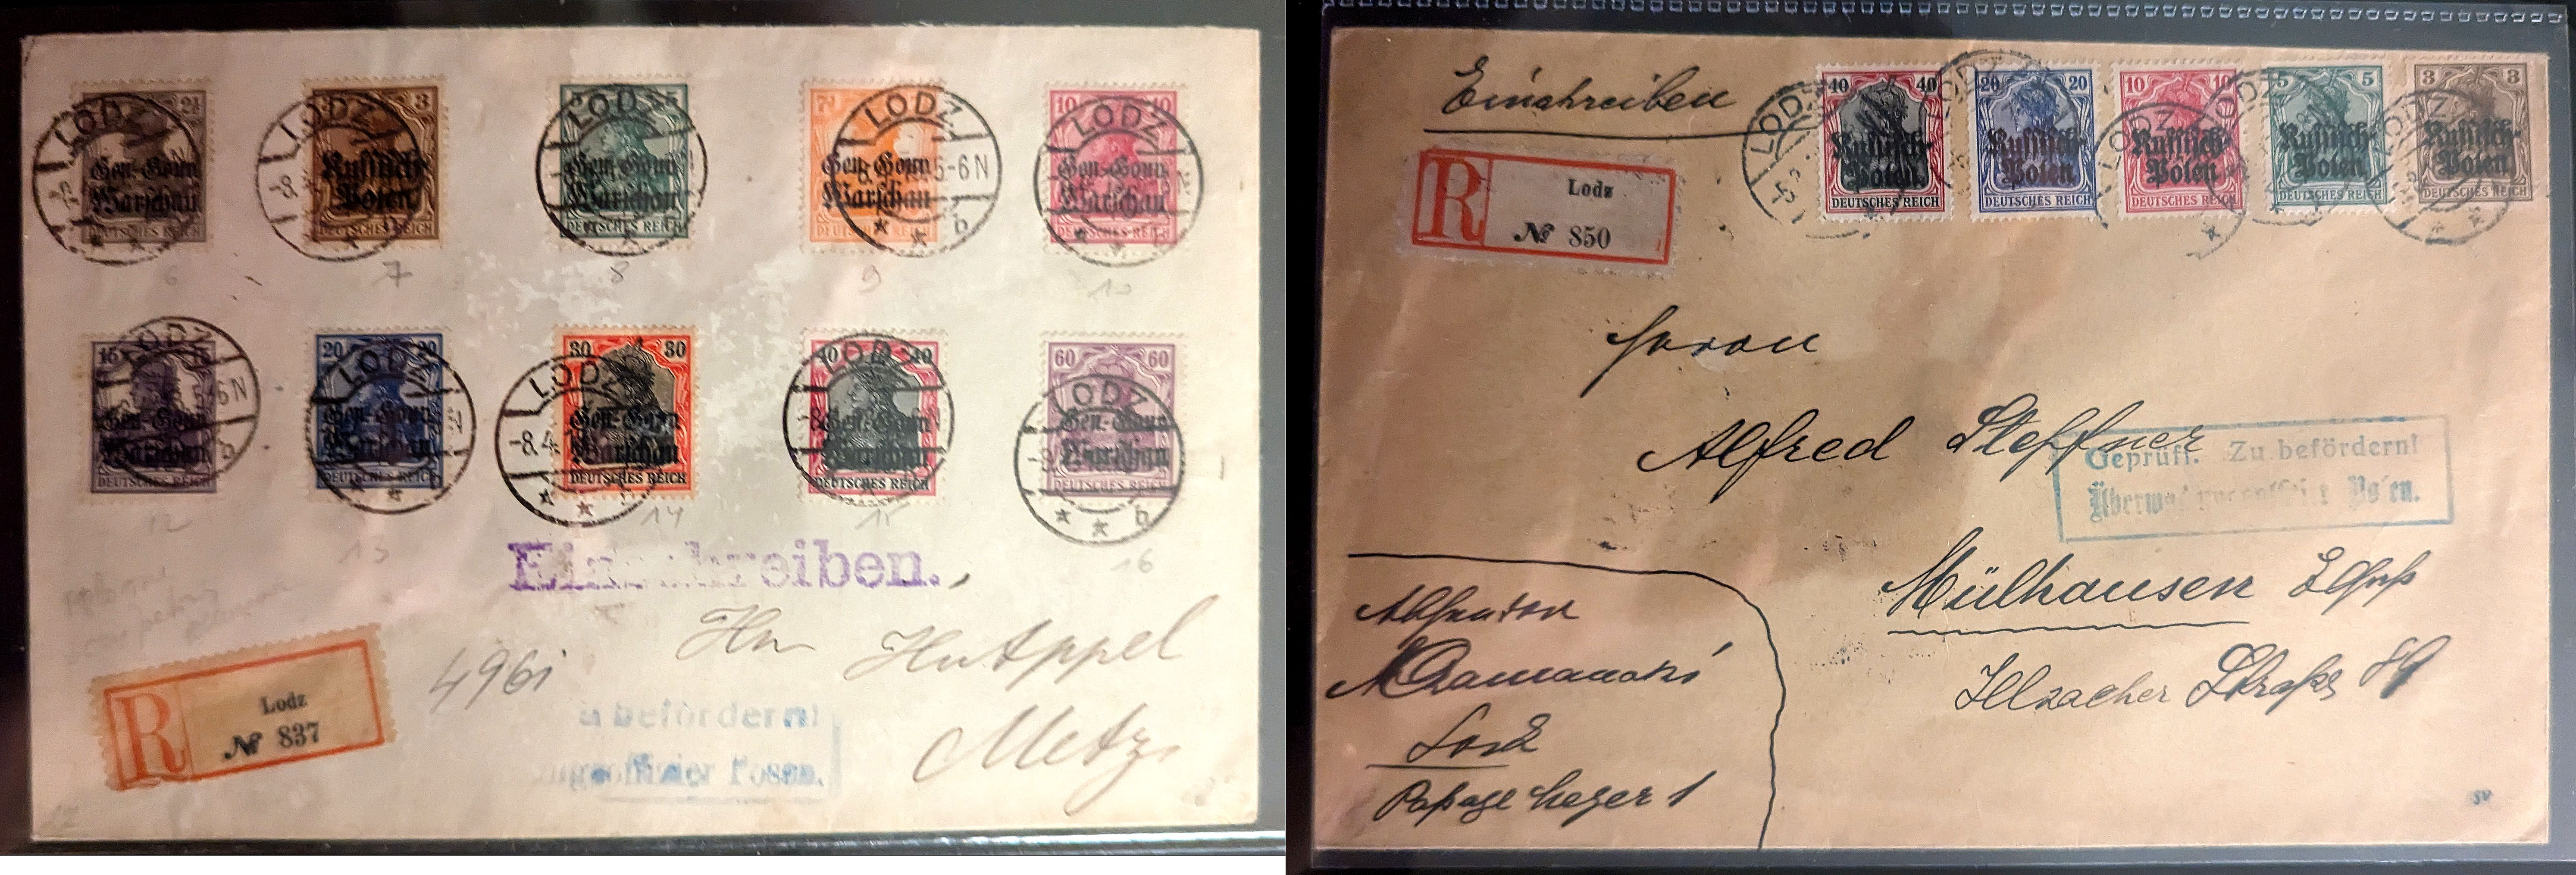 2½
LODZ
Gen.-Gouv.
Warschau
DEUTSCHES REICH
6
3 3
LODZ
-8.
Russisch-
Polen
DEUTSCHES REICH
7
5
LODZ
Gen.-Gouv.
Warschau
DEUTSCHES REICH
8
7½
LODZ
5-6N
Gen.-Gouv.
Warschau
DEUTSCHES REICH
b
9
10 10
LODZ
Gen.-Gouv.
Warschau
DEUTSCHES REICH
10
15 15
LODZ
5-6N
Gen.-Gouv.
Warschau
DEUTSCHES REICH
b
12
20 20
LODZ
Gen.-Gouv.
Warschau
DEUTSCHES REICH
13
30 30
LODZ
-8.4.
Gen.-Gouv.
Warschau
DEUTSCHES REICH
14
40 40
LODZ
-8.
Gen.-Gouv.
Warschau
DEUTSCHES REICH
15
60 60
LODZ
Gen.-Gouv.
Warschau
DEUTSCHES REICH
b
16
Einschreiben.
R
Lodz
№ 837
496i
Hn Hutappel
Metz
befördern!
Posen.
Einschreiben
R
Lodz
№ 850
LODZ
40 40
Russisch-
Polen
DEUTSCHES REICH
LODZ
20 20
Russisch-
Polen
DEUTSCHES REICH
LODZ
10 10
Russisch-
Polen
DEUTSCHES REICH
LODZ
5 5
Russisch-
Polen
DEUTSCHES REICH
LODZ
3 3
Russisch-
Polen
DEUTSCHES REICH
Herrn
Alfred Steffner
Geprüft. Zu befördern!
Mülhausen Elsaß
Illzacher Straße 89
Absender
Lodz
Paßage Meyer 1